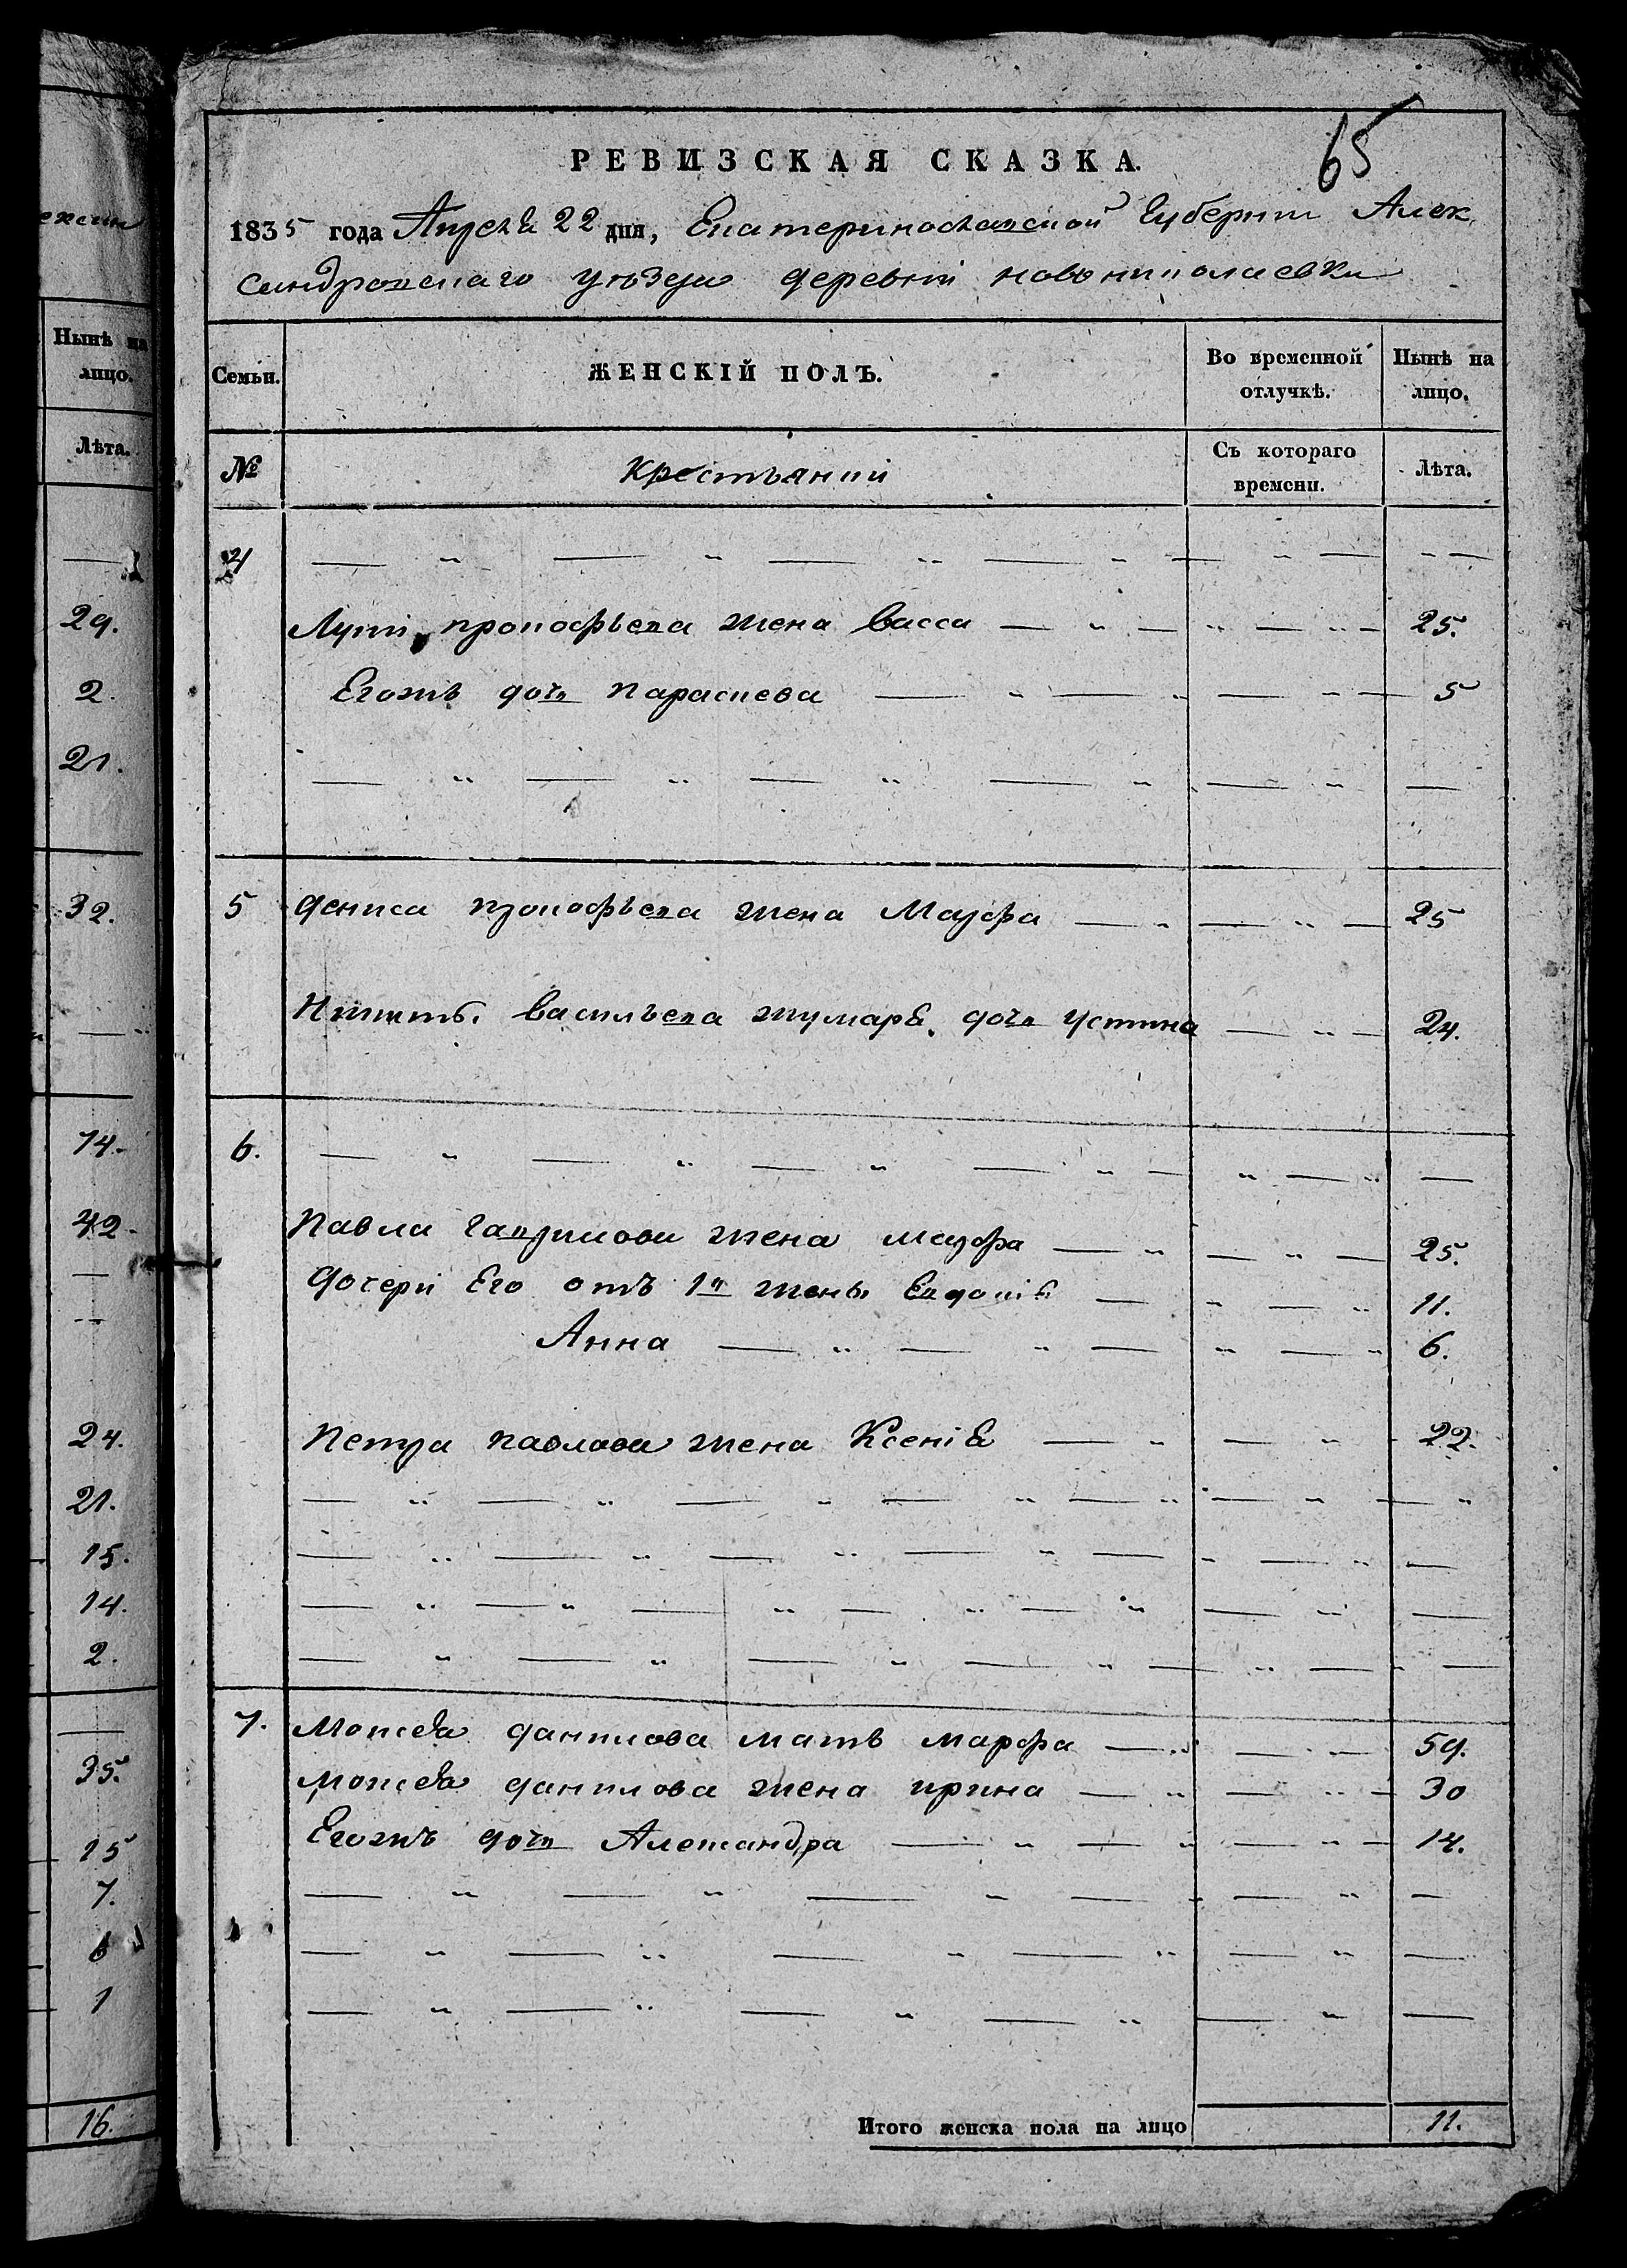 ексан
Нынѣ на
лицо.
Лѣта.
29.
2.
21.
32.
14.
42.
24.
21.
15.
14.
2.
35.
15
7.
6
1
16.
65
РЕВИЗСКАЯ СКАЗКА.
1835 года Апреля 22 дня, Екатеринославской Губернии Алек
сандровскаго уѣзда деревни новониколаевки
Семьи. ЖЕНСКІЙ ПОЛЪ. Во временной отлучкѣ. Нынѣ на лицо.
№ Крестьянии Съ котораго времени. Лѣта.
4
прокофьева жена васса 25.
Егожъ дочь параскева 5
5 дениса прокофьева жена Марфа 25
васильева дочь устина 24.
6.
Павла гаврилова жена марфа 25.
дочери Его отъ 1й жены Евдокія 11.
Анна 6.
Петра павлова жена Ксенія 22.
7. Моисея данилова мать марфа 59.
Моисея данилова жена ирина 30
Егожъ дочь Александра 14.
Итого женска пола на лицо 11.